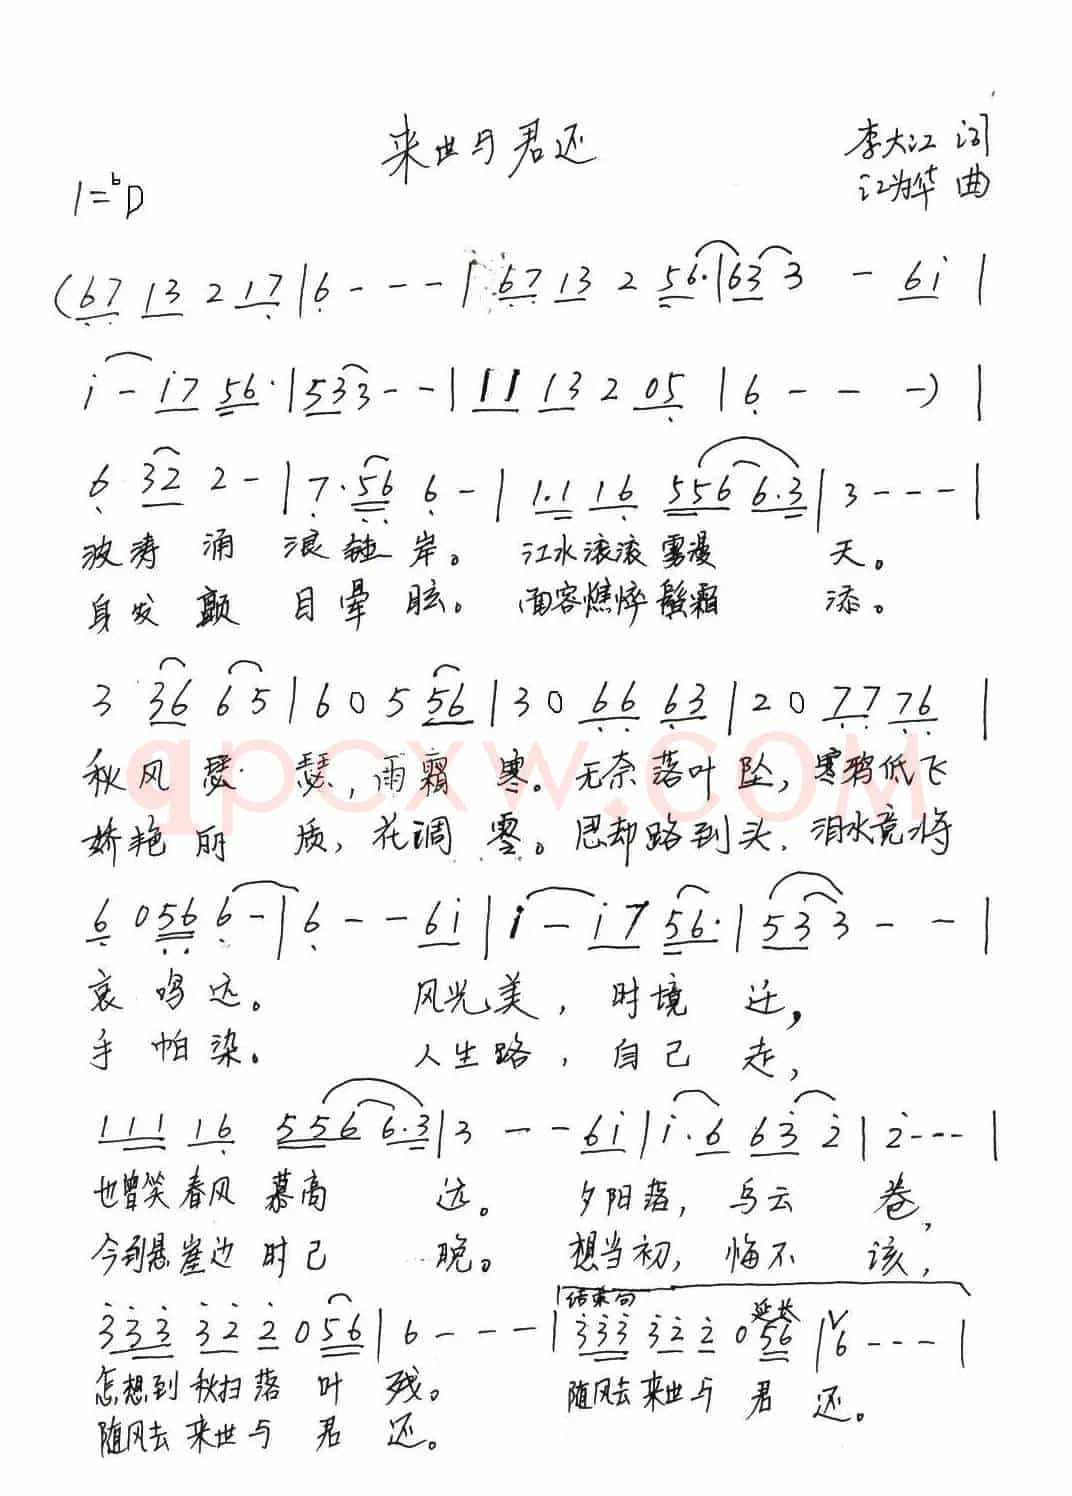 来世与君还
李大江 词
1=ᵇD
江为华 曲
(67 13 2 17 | 6 - - - | 67 13 2 56· | 63 3 - 6i |
i - i7 56· | 533 - - | 11 13 2 05 | 6 - - -) |
6 32 2 - | 7·56 6 - | 1·1 16 556 6·3 | 3 - - - |
波涛涌 浪 岸。 江水滚滚雾漫 天。
身发颤 目晕眩。 面容憔悴鬓霜 添。
3 36 65 | 6 0 5 56 | 3 0 66 63 | 2 0 77 76 |
秋风瑟瑟,雨霜寒。无奈落叶坠,寒鸦低飞
娇艳丽质,花调零。思却路到头,泪水竟将
qpcxw.COM
6 0 56 6 - | 6 - - 6i | i - i7 56· | 533 - - |
哀鸣远。 风光美,时境迁,
手帕染。 人生路,自己走,
111 16 556 6·3 | 3 - - 6i | i·6 63 2 | 2 - - - |
也曾笑春风慕高 远。 夕阳落,乌云 卷,
今到悬崖边时已 晚。 想当初,悔不 该,
结束句
延长
333 32 2 0 56 | 6 - - - | 333 32 2 0 56 | 6 - - - |
怎想到秋扫落 叶 残。 随风去来世与 君 还。
随风去来世与 君 还。